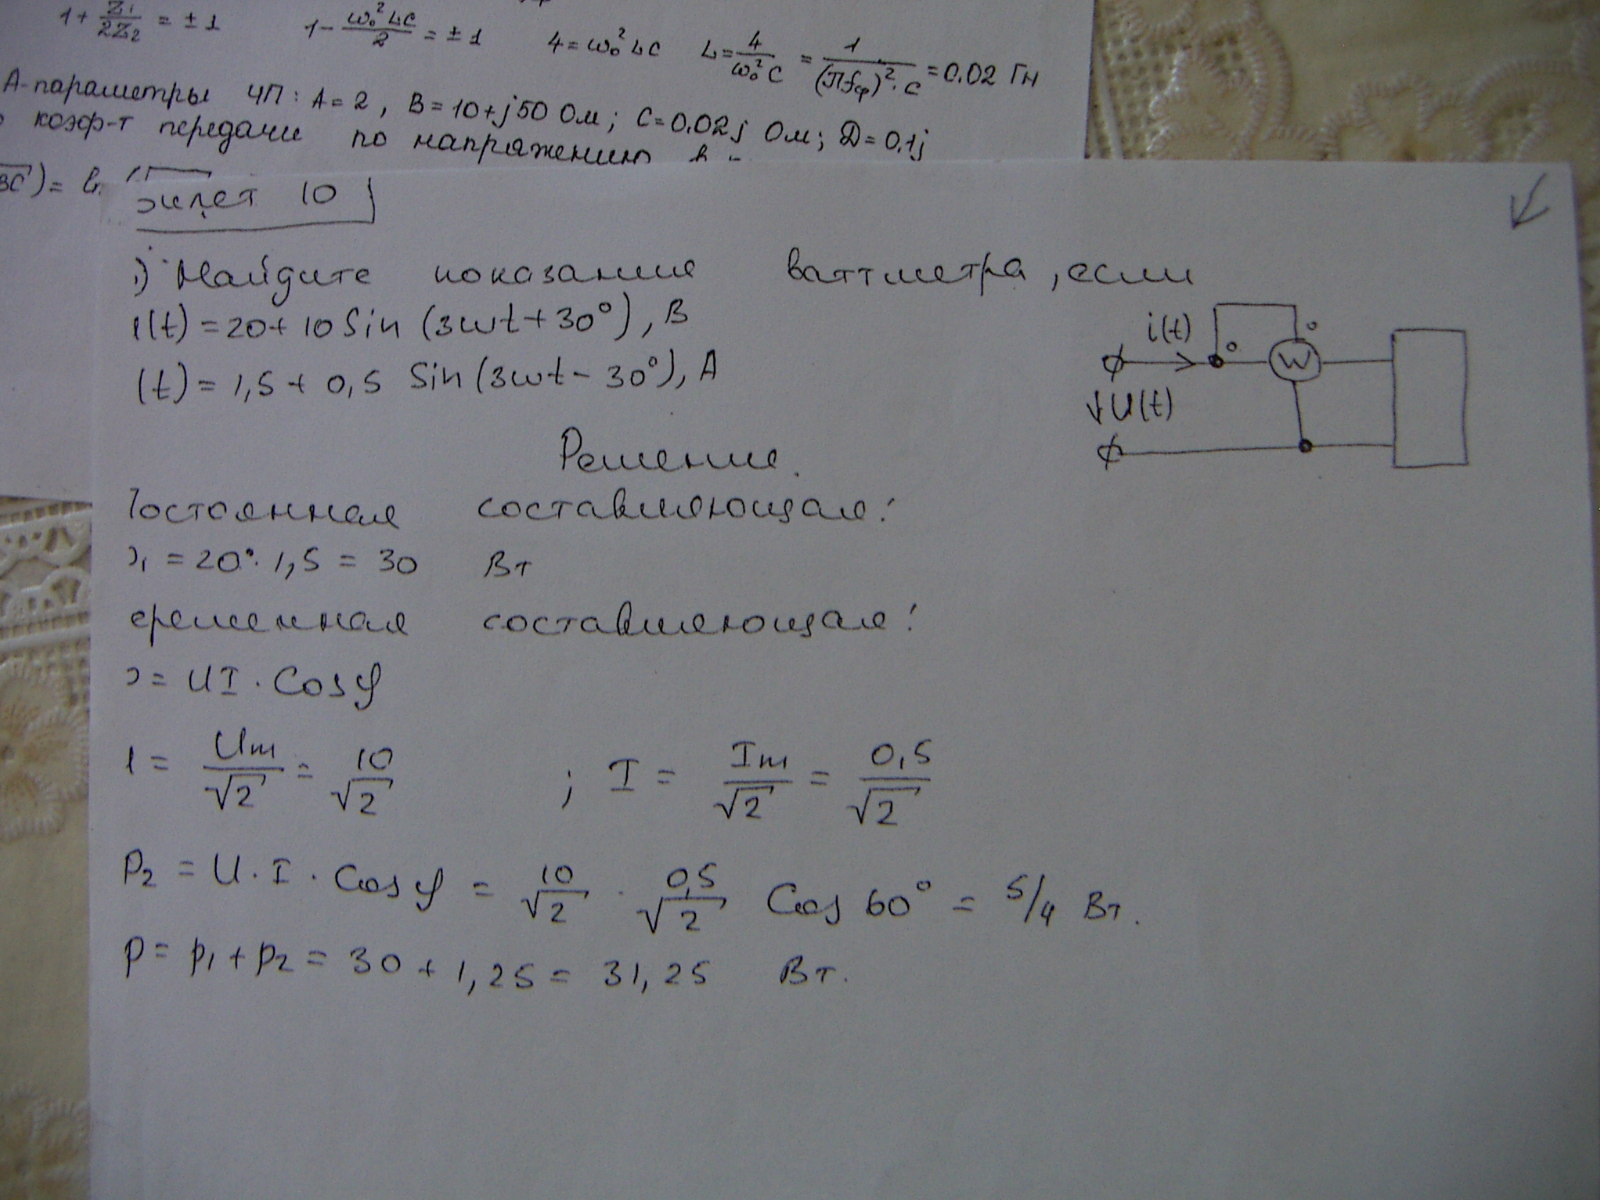 1 + Z1/2Z2 = ± 1     1 - ω₀²LC/2 = ± 1     4 = ω₀²LC     L = 4/ω₀²C = 1/(πfср)²·C = 0.02 Гн
А-параметры ЧП: A = 2, B = 10 + j50 Ом; C = 0.02j Ом; D = 0,1j
коэф-т передачи по напряжению
BC) =
билет 10
1) Найдите показание ваттметра, если
(t) = 20 + 10 Sin (3ωt + 30°), В
(t) = 1,5 + 0,5 Sin (3ωt - 30°), А
i(t)
W
U(t)
Решение.
остоянная составляющая:
₁ = 20 · 1,5 = 30 Вт
еременная составляющая:
= UI · Cosφ
= Um/√2 = 10/√2 ; I = Im/√2 = 0,5/√2
P₂ = U · I · Cosφ = 10/√2 · 0,5/√2 Cos 60° = 5/4 Вт.
P = P₁ + P₂ = 30 + 1,25 = 31,25 Вт.